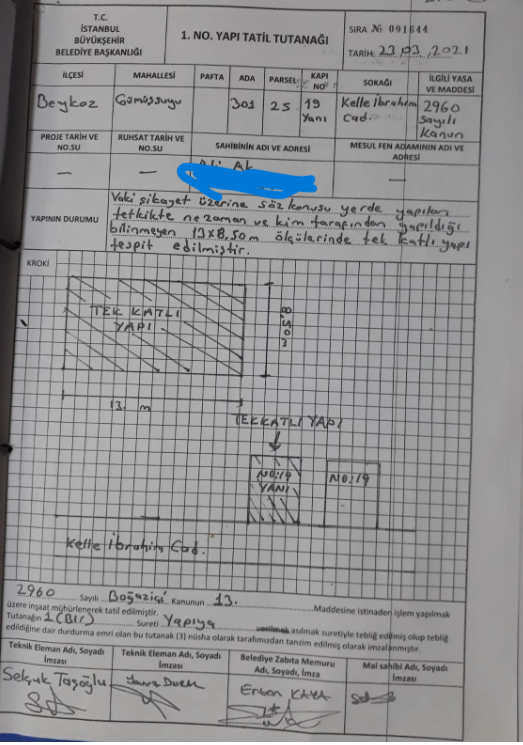 T.C.
İSTANBUL
BÜYÜKŞEHİR
BELEDİYE BAŞKANLIĞI
1. NO. YAPI TATİL TUTANAĞI
SIRA № 091644
TARİH: 23/03/2021
İLÇESİ
MAHALLESİ
PAFTA
ADA
PARSEL
KAPI NO
SOKAĞI
İLGİLİ YASA VE MADDESİ
Beykoz
Gümüşsuyu
301
25
19 Yanı
Kelle İbrahim Cad.
2960 Sayılı Kanun
PROJE TARİH VE NO.SU
RUHSAT TARİH VE NO.SU
SAHİBİNİN ADI VE ADRESİ
MESUL FEN ADAMININ ADI VE ADRESİ
—
—
Ali Ak
—
YAPININ DURUMU
Vaki şikayet üzerine söz konusu yerde yapılan
tetkikte ne zaman ve kim tarafından yapıldığı
bilinmeyen 13x8,50m ölçülerinde tek katlı yapı
tespit edilmiştir.
KROKİ
TEK KATLI
YAPI
8,50
13. m
TEK KATLI YAPI
NO:19
YANI
NO:19
Kelle İbrahim Cad.
2960 Sayılı Boğaziçi Kanunun 13. Maddesine istinaden işlem yapılmak
üzere inşaat mühürlenerek tatil edilmiştir.
Tutanağın 1 (Bir) Sureti Yapıya verilmek asılmak suretiyle tebliğ edilmiş olup tebliğ
edildiğine dair durdurma emri olan bu tutanak (3) nüsha olarak tarafımızdan tanzim edilmiş olarak imzalanmıştır.
Teknik Eleman Adı, Soyadı İmzası
Teknik Eleman Adı, Soyadı İmzası
Belediye Zabıta Memuru Adı, Soyadı, İmza
Mal sahibi Adı, Soyadı İmzası
Selçuk Taşoğlu
Ercan KAYA